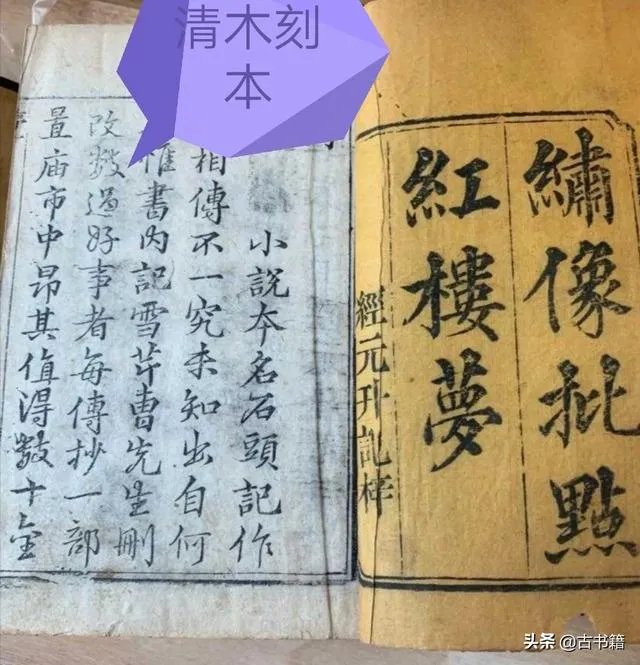 清木刻
本
繡像批點
紅樓夢
經元升記梓
小說本名石頭記作
相傳不一究未知出自何
惟書內記雪芹曹先生刪
改數過好事者每傳抄一部
置庙市中昂其值得數十金
头条 @古书籍